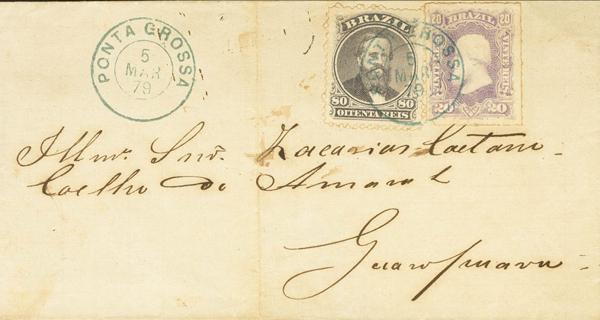 PONTA GROSSA
5
MAR
79
BRAZIL
80 80
OITENTA REIS
PONTA GROSSA
5
MAR
79
20 BRAZIL 20
VINTE REIS
20 20
Illmo. Snr. Zacarias Caetano
Coelho do Amaral
Guarapuava